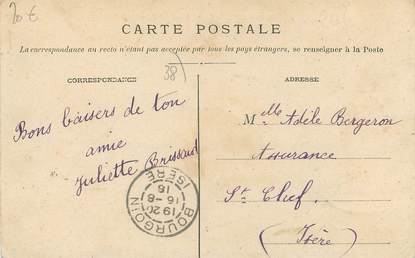 20 €
CARTE POSTALE
La correspondance au recto n'étant pas acceptée par tous les pays étrangers, se renseigner à la Poste
38
CORRESPONDANCE
ADRESSE
Bons baisers de ton
amie
Juliette Brissaud
Mlle Adèle Bergeron
Assurance
St Chef.
(Isère)
BOURGOIN
ISÈRE